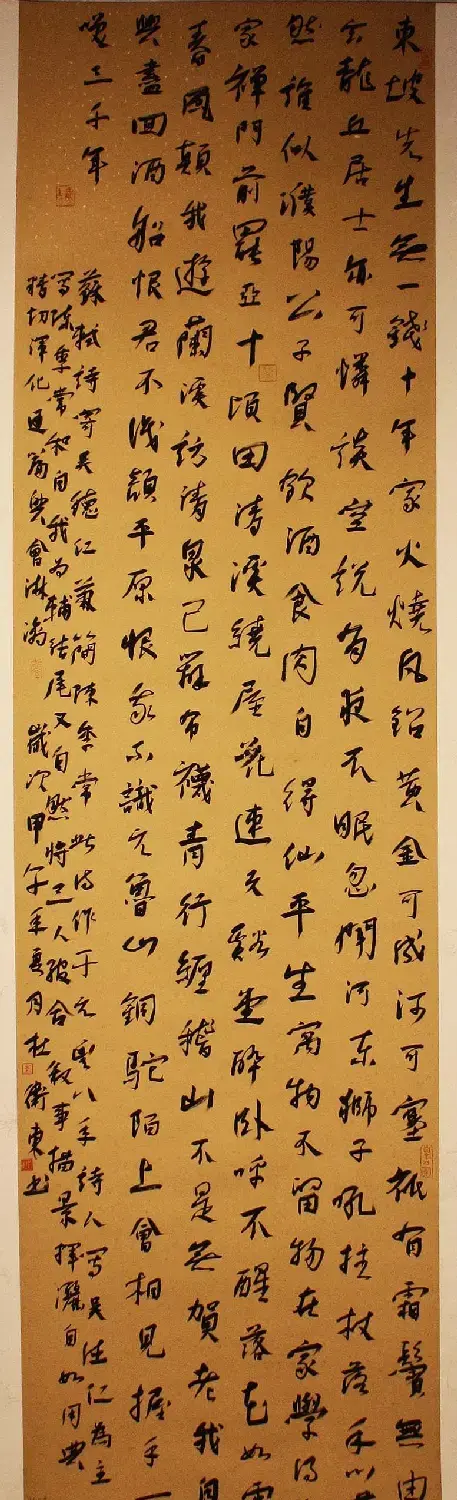 東坡先生無一錢十年家火燒凡鉛黃金可成河可塞秖有霜鬢無由
玄龍丘居士亦可憐談空說有夜不眠忽聞河東獅子吼拄杖落手心
然誰似濮陽公子賢飲酒食肉自得仙平生寓物不留物在家學得
家禪門前罷亞十頃田清溪繞屋花連天谿堂醉臥呼不醒落花如雪
春風顛我遊蘭溪訪清泉已辦布襪青行纏稽山不是無賀老我自
興盡回酒船恨君不識顏平原恨我不識元魯山銅駝陌上會相見握手一
咲三千年
蘇軾詩寄吳德仁兼簡陳季常此詩作于元豐八年詩人寫吳德仁為主
寫陳季常和自我為輔結尾又自然將三人綰合敘事描景揮灑自如用典
精切渾化通篇興會淋漓 歲次甲午年夏月杜衛東書